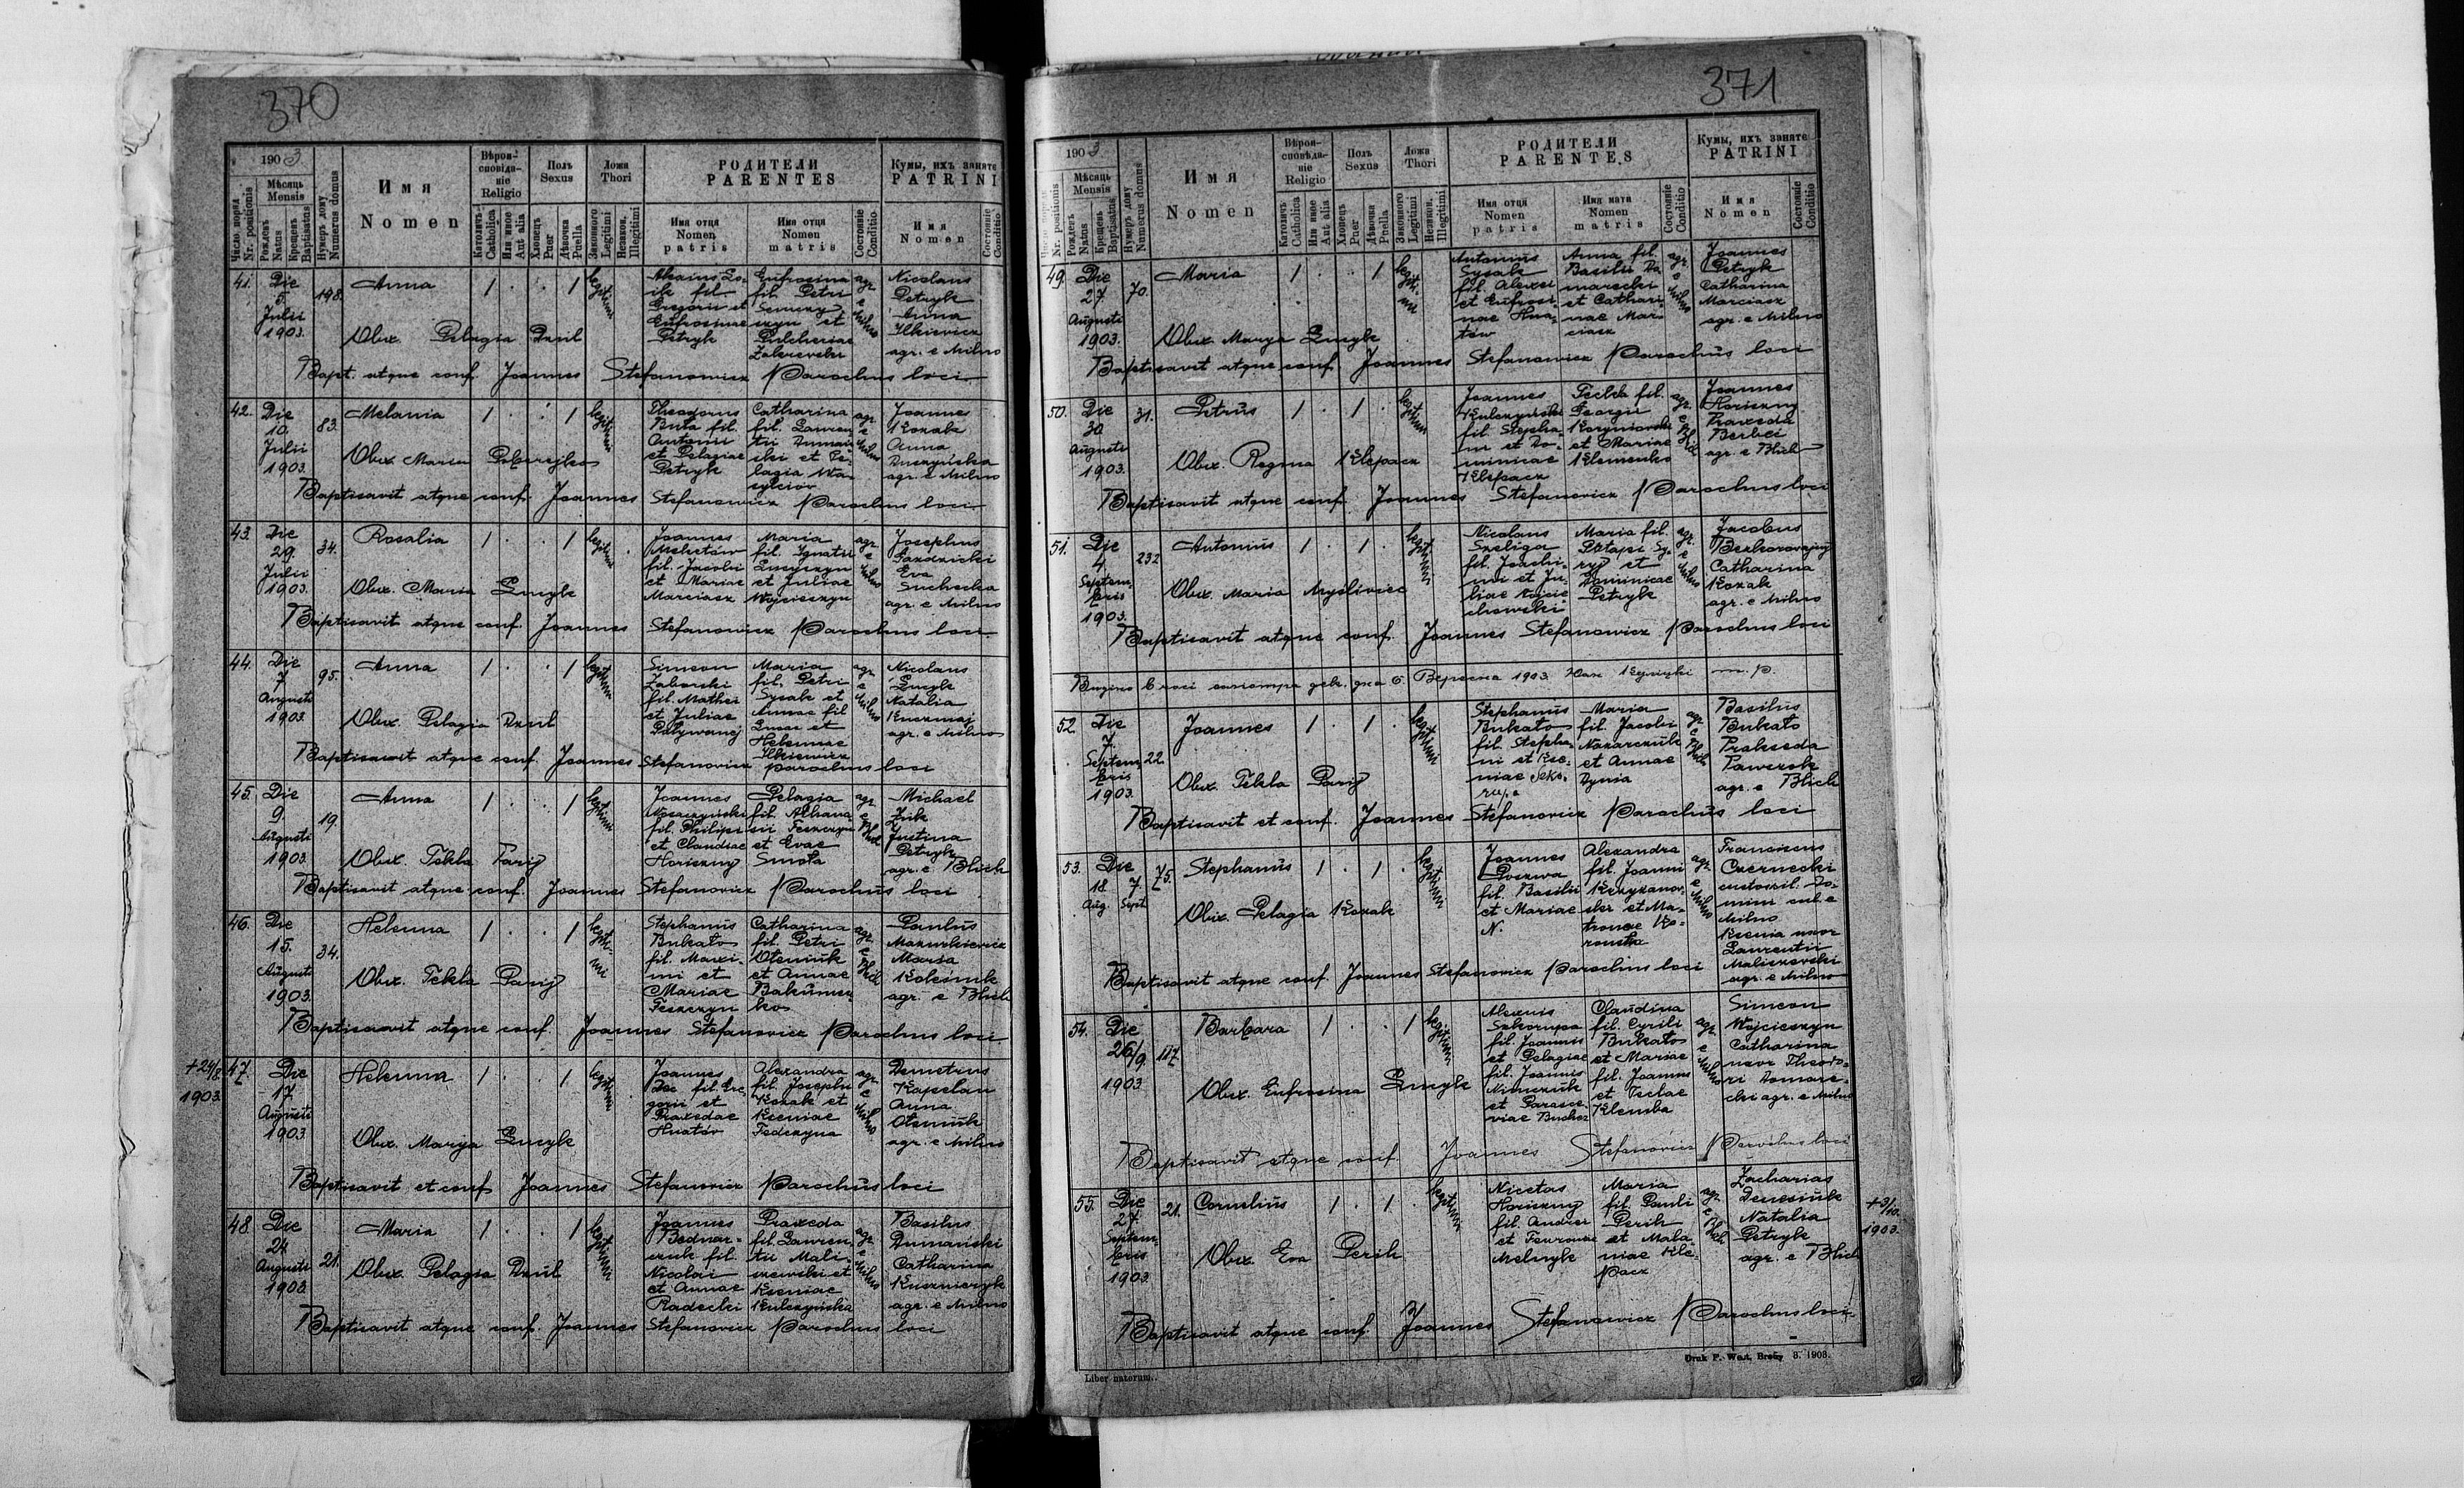 370
1903
Число поряд.
Nr. positionis
Мѣсяць
Mensis
Рожденъ
Natus
Крещенъ
Baptisatus
Нумеръ дому
Numerus domus
Имя
Nomen
Вѣроисповѣданіе
Religio
Католич.
Catholica
Или иное
Aut alia
Полъ
Sexus
Хлопець
Puer
Дѣвочка
Puella
Ложа
Thori
Законного
Legitimi
Незакон.
Illegitimi
РОДИТЕЛИ
PARENTES
Имя отця
Nomen
patris
Имя отця
Nomen
matris
Состояніе
Conditio
Кумы, ихъ заняте
PATRINI
Имя
Nomen
Состояніе
Conditio
41. Die 5. Julii 1903. 198. Anna 1 . . 1 legitimi
fil. Gregorii et Eufrosinae Petryk
Eufrosina fil. Petri et Pulcheriae
agr. e Milno
Nicolaus Petryk Anna Ilkiewicz agr. e Milno
Obux. Pelagia Dzul
Bapt. atque conf. Joannes Stefanowicz Parochus loci
42. Die 10. Julii 1903. 83. Melania 1 . . 1 legitimi
Theodorus Buta fil. Antonii et Pelagiae Petryk
Catharina fil. Lauren-
tii et Pe-
lagia Wa-
sylciów
agr. e Milno
Joannes Kozak Anna agr. e Milno
Obux Maria
Baptisavit atque conf. Joannes Stefanowicz Parochus loci
43. Die 29. Julii 1903. 34. Rosalia 1 . . 1 legitimi
Joannes Meketów fil. Jacobi et Mariae Marciasz
Maria fil. Ignatii et Juliae Wojcieszyn
agr. e Milno
Josephus Eva Suchecka agr. e Milno
Obux. Maria Zmyk
Baptisavit atque conf. Joannes Stefanowicz Parochus loci
44. Die 7 Augusti 1903 95. Anna 1 . . 1 legitimi
Simeon Zaborski fil. Mathei et Juliae
Maria fil. Petri Sysak et Annae fil Lucae et Helennae Ilkiewicz
agr. e Milno
Nicolaus Zmyk Natalia agr. e Milno
Obux. Pelagia Dzul
Baptisavit atque conf. Joannes Stefanowicz parochus loci
45. Die 9. Augusti 1903 19. Anna 1 . . 1 legitimi
Joannes fil. Philippi et Claudiae Horiszny
Pelagia fil. Athana-
sii Feszczyn et Evae Smota
agr. e Blich
Michael Żuk Justina Petryk agr. e Blich
Obux. Tekla Parij
Baptisavit atque conf. Joannes Stefanowicz Parochus loci
46. Die 15. Augusti 1903. 34. Helenna 1 . . 1 legiti-
mi
Stephanus Bukato fil. Maxi-
mi et Mariae Feszczyn
Catharina fil. Petri Oleniuk et Annae
agr. e Blich
Paulus Mazurkiewicz Maria Kolesnik agr. e Blich
Obux Tekla Parij
Baptisavit atque conf. Joannes Stefanowicz Parochus loci
+24/8 1903
47. Die 17 Augusti 1903 Helenna 1 . . 1 legitimi
Joannes fil. Gre-
gorii et Praxedae Hnatów
Alexandra fil. Josephi Kozak et Kseniae Fedczyna
agr. e Milno
Demetrius Kapselan Anna Oleniuk agr. e Milno
Obux. Marija Zmyk
Baptisavit et conf Joannes Stefanowicz Parochus loci
48. Die 24 Augusti 1903 21. Maria 1 . . 1 legitimi
Joannes Bednar-
czuk fil. Nicolai et Annae Radecki
Praxeda fil. Lauren-
tii Mali-
szewski et Kseniae Kulczyńska
agr. e Milno
Basilius Dumański Catharina Kusznieryk agr. e Milno
Obux. Pelagia Dzul
Baptisavit atque conf. Joannes Stefanowicz Parochus loci
371
1903
Nr. positionis
Мѣсяць
Mensis
Рожденъ
Natus
Крещенъ
Baptisatus
Нумеръ дому
Numerus domus
Имя
Nomen
Вѣроисповѣданіе
Religio
Католич.
Catholica
Или иное
Aut alia
Полъ
Sexus
Хлопець
Puer
Дѣвочка
Puella
Ложа
Thori
Законного
Legitimi
Незакон.
Illegitimi
РОДИТЕЛИ
PARENTES
Имя отця
Nomen
patris
Имя мати
Nomen
matris
Состояніе
Conditio
Кумы, ихъ заняте
PATRINI
Имя
Nomen
Состояніе
Conditio
49. Die 27. Augusti 1903. 70. Maria 1 . . 1 legiti-
mi
Antonius Sysak fil. Alexii et Eufrosi-
nae Hna-
tów
Anna fil. Basilii Do-
marecki et Cathari-
nae Mar-
ciasz
agr. e Milno
Joannes Petryk Catharina Marciasz agr. e Milno
Obux. Marya Zmyk
Baptisavit atque conf Joannes Stefanowicz Parochus loci
50. Die 30 Augusti 1903. 31. Petrus 1 . 1 . legitimi
Joannes Kulczyński fil. Stepha-
ni et Do-
minicae Klepacz
Tecla fil. Georgii et Mariae Klemenko
agr. e Blich
Joannes Horiszny Praxeda Berbeć agr. e Blich
Obux. Regina Klepacz
Baptisavit atque conf. Joannes Stefanowicz Parochus loci
51. Die 4. Septem-
bris 1903. 232 Antonius 1 . 1 . legitimi
Nicolaus Szeliga fil. Joachi-
mi et Ju-
liae Wojcie-
chowski
Maria fil. et Dominicae Petryk
agr. e Milno
Jacobus Catharina Kozak agr. e Milno
Obux. Maria Myśliwiec
Baptisavit atque conf. Joannes Stefanowicz Parochus loci
6. Вересня 1903. m. p.
52. Die 7. Septem-
bris 1903. 22 Joannes 1 . 1 . legitimi
Stephanus Bukato fil. Stepha-
ni et Kse-
niae
Maria fil. Jacobi Nazarczuk et Annae Dynia
agr. e Blich
Basilius Bukato Prakseda Pawczok agr. e Blich
Obux Tekla Parij
Baptisavit et conf. Joannes Stefanowicz Parochus loci
53. Die 18 Aug. 7 Sept 75. Stephanus 1 . 1 . legitimi
Joannes Poszwa fil. Basilii et Mariae N.
Alexandra fil. Joanni Krzyzanow-
ski et Ma-
tronae
agr. e Milno
Franciscus Czernecki Milno Ksenia uxor Laurentii Maliszewski agr. e Milno
Obux. Pelagia Kozak
Baptisavit atque conf. Joannes Stefanowicz Parochus loci
54. Die 26/9 1903 117 Barbara 1 . . 1 legitimi
Alexius Szkorupa fil. Joannis et Pelagiae fil. Joannis Niemczuk et Parasce-
viae
Claudina fil. Cyrili Bukato et Mariae fil. Joannis et Teclae Klemba
agr. e Milno
Simeon Wojcieszyn Catharina uxor Theodo-
ri Domare-
cki agr. e Milno
Obux. Eufrosina Zmyk
Baptisavit atque conf. Joannes Stefanowicz Parochus loci
55. Die 27. Septem-
bris 1903 21. Cornelius 1 . 1 . legitimi
Nicetas Horiszny fil. Andreae et Melnyk
Maria fil. Pauli Perih et Mala-
niae Kle-
pacz
agr. e Blich
Zacharias Denesiuk Natalia Petryk agr. e Blich
+3/10. 1903.
Obux. Eva Perih
Baptisavit atque conf. Joannes Stefanowicz Parochus loci
Liber natorum.
Druk F. West, Brody 3. 1903.